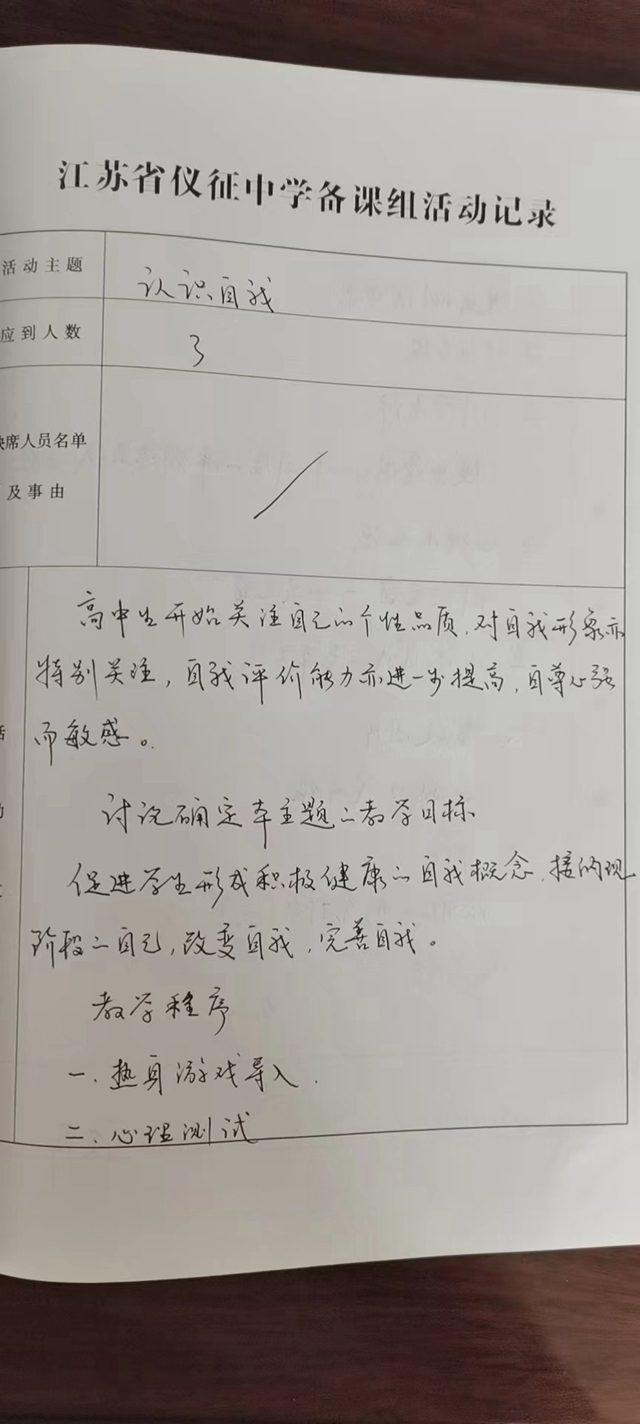 江苏省仪征中学备课组活动记录
活动主题
认识自我
应到人数
3
缺席人员名单
及事由
高中生开始关注自己的个性品质，对自我形象亦
特别关注，自我评价能力亦进一步提高，自尊心强
而敏感。
讨论确定本主题的教学目标
促进学生形成积极健康的自我概念，接纳现
阶段的自己，改变自我，完善自我。
教学程序
一.热身游戏导入.
二.心理测试